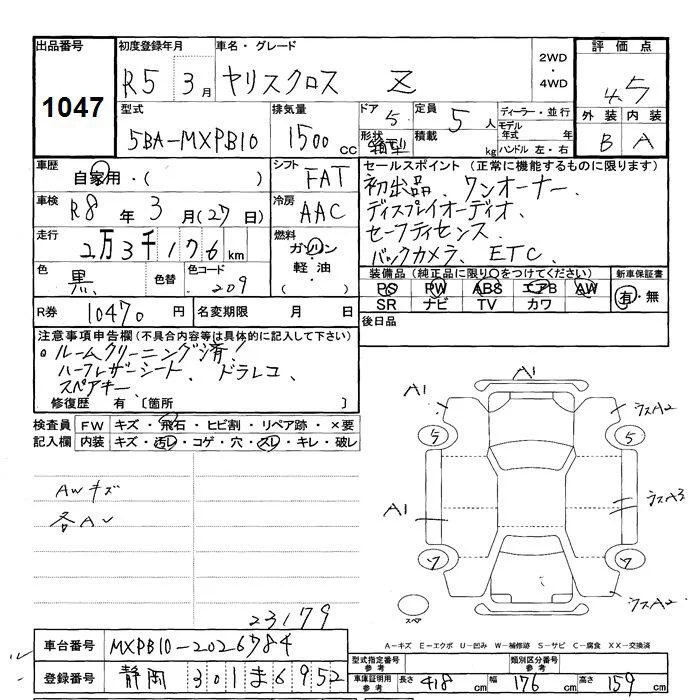 出品番号 初度登録年月 車名・グレード 2WD・4WD 評価点
1047 R5 3月 ヤリスクロス Z 4.5
型式 排気量 ドア 定員 ディーラー・並行 外装 内装
5BA-MXPB10 1500cc 5 5人 モデル年式 年 B A
形状 箱型 積載 kg ハンドル 左・右
車歴 自家用・( ) シフト FAT セールスポイント(正常に機能するものに限ります)
車検 R8年 3月(27日) 冷房 AAC 初出品、ワンオーナー、
ディスプレイオーディオ、
走行 2万3千176km 燃料 ガソリン・軽油・( ) セーフティセンス、
バックカメラ、ETC、
色 黒 色替 色コード 209 装備品(純正品に限り〇をつけてください) 新車保証書
PS PW ABS エアB AW 有・無
R券 10470円 名変期限 月 日 SR ナビ TV カワ
後日品
注意事項申告欄(不具合内容等は具体的に記入して下さい)
ルームクリーニング済!
ハーフレザーシート、ドラレコ、
スペアキー、
修復歴 有〔箇所 〕
検査員 FW キズ・飛石・ヒビ割・リペア跡・×要
記入欄 内装 キズ・汚レ・コゲ・穴・スレ・キレ・破レ
A1 A1 ラスA2
5 5
AWキズ
各A
A1 ラスA3
7 7
ラスA2
スペア
23179
A-キズ E-エクボ U-凹み W-補修跡 S-サビ C-腐食 XX-交換済
車台番号 MXPB10-2026784 型式指定番号 参考 類別区分番号 参考
登録番号 静岡 301 ま 6952 車庫証明用 参考 長さ 418cm 幅 176cm 高さ 159cm